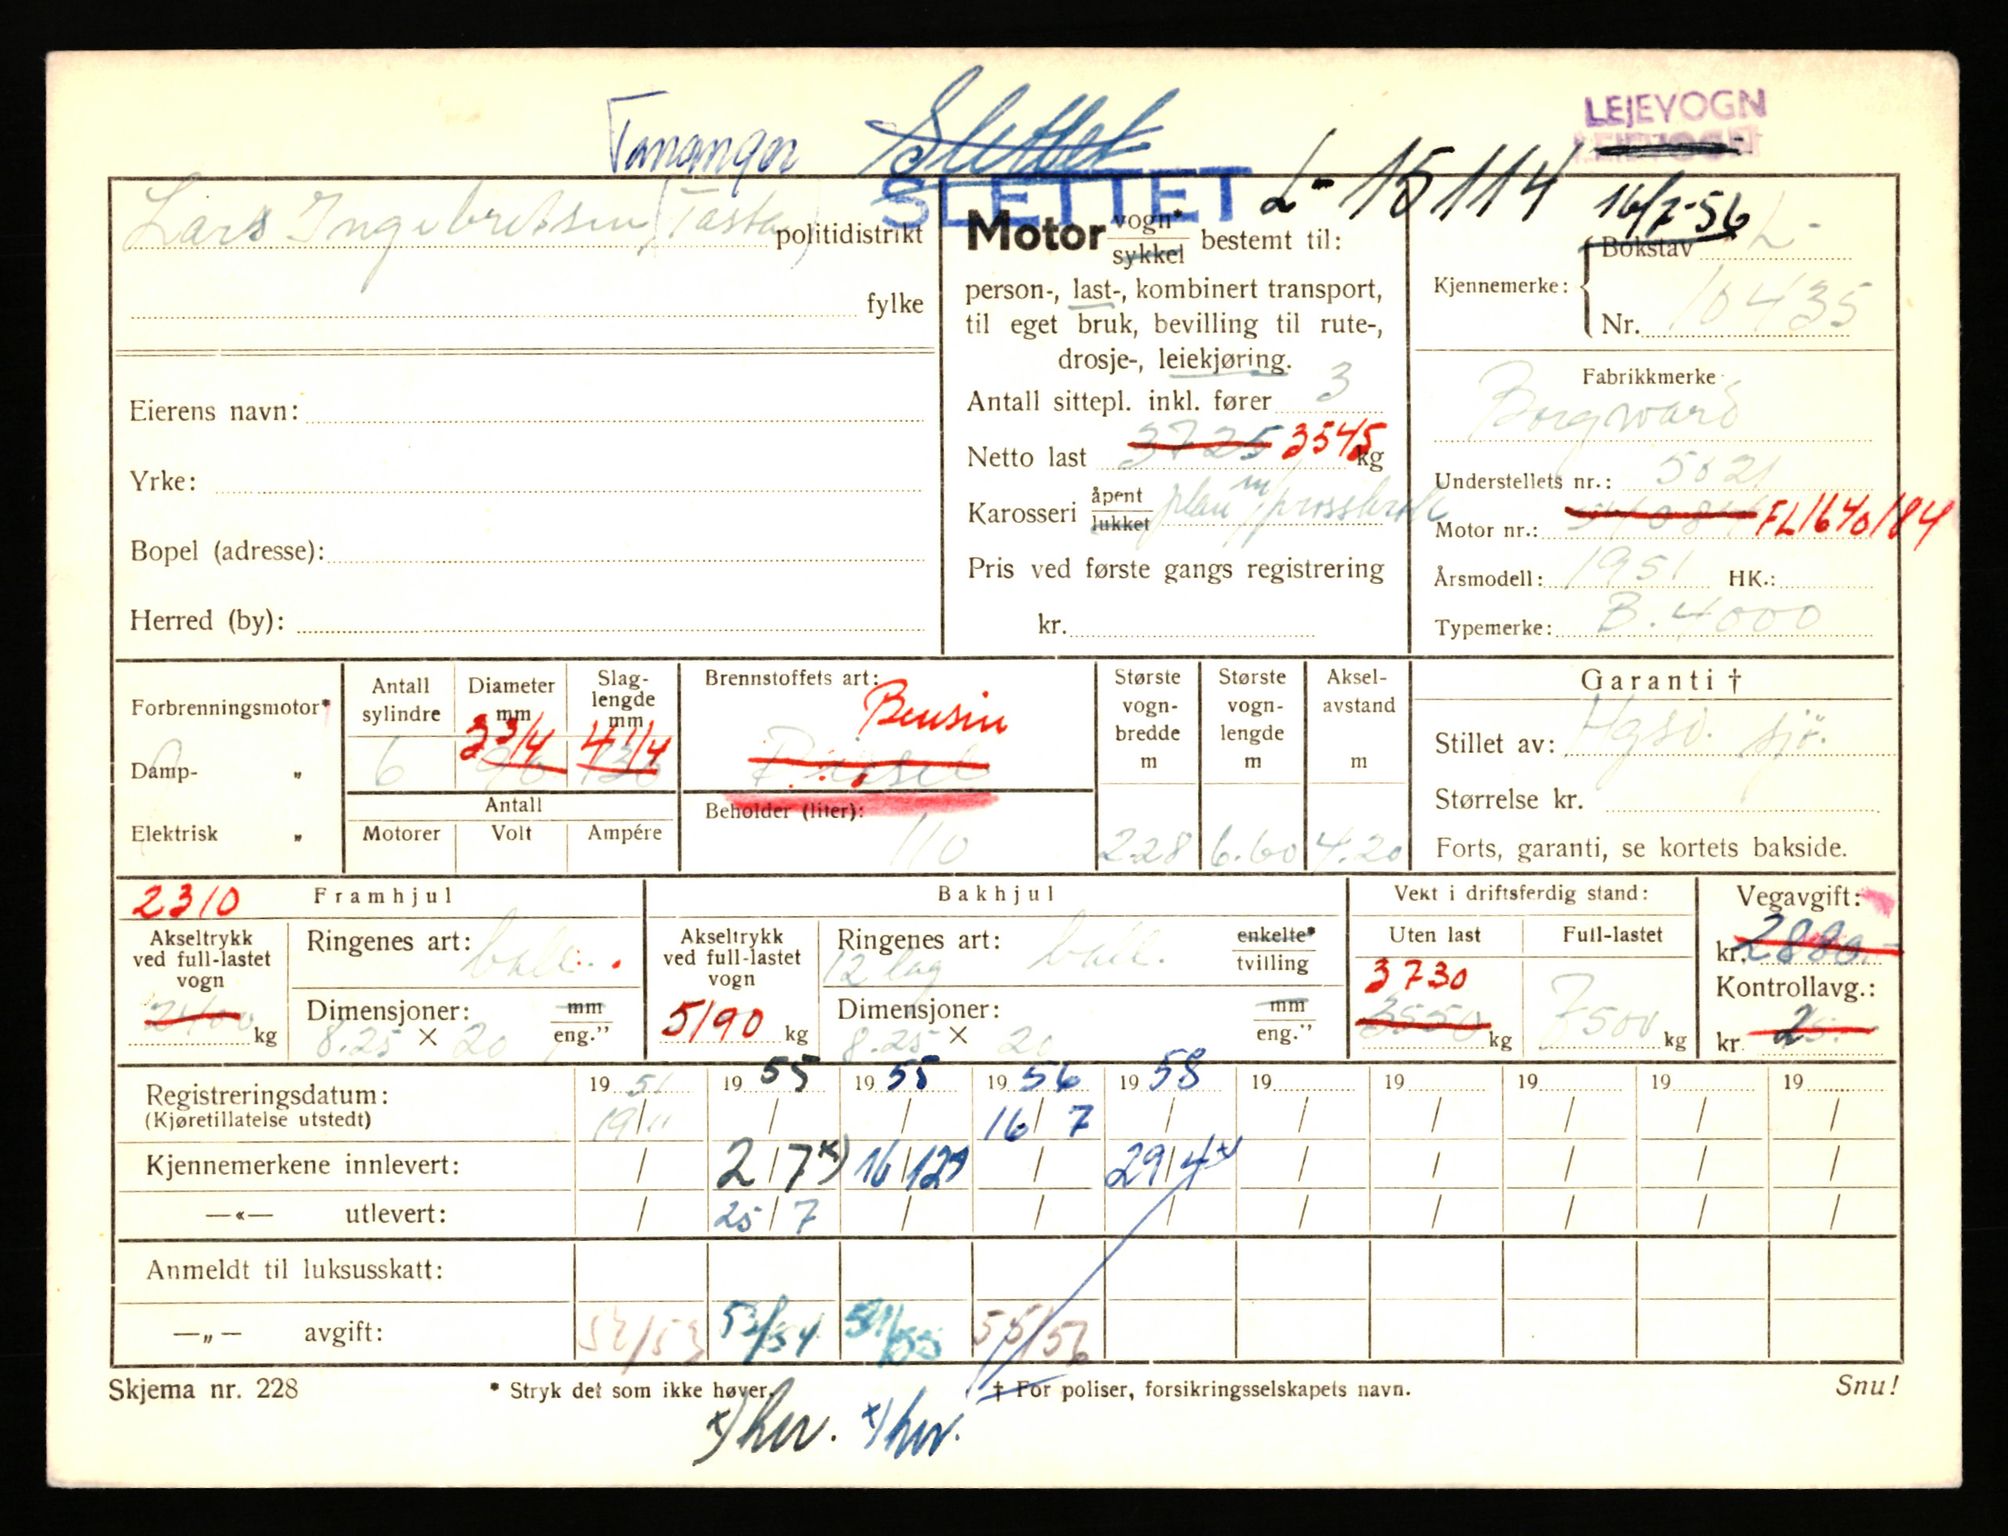 Tananger Slettet LEJEVOGN
SLETTET L-15114 16/7-56
Lars Ingebretsen (Tasta) politidistrikt
fylke
Eierens navn:
Yrke:
Bopel (adresse):
Herred (by):
Motor vogn* sykkel bestemt til:
person-, last-, kombinert transport,
til eget bruk, bevilling til rute-,
drosje-, leiekjøring.
Antall sittepl. inkl. fører 3
Netto last 3725 3545 kg
Karosseri åpent lukket plan m/
Pris ved første gangs registrering
kr.
Kjennemerke: Bokstav L-
Nr. 10435
Fabrikkmerke
Borgward
Understellets nr.: 5021
Motor nr.: FL1640184
Årsmodell: 1951 HK.:
Typemerke: B.4000
Forbrenningsmotor*
Damp- „
Elektrisk „
Antall sylindre 6
Diameter mm 96 3 3/4
Slaglengde mm 130 4 1/4
Antall
Motorer Volt Ampére
Brennstoffets art: Bensin
Diesel
Beholder (liter):
110
Største vogn-bredde m 2.28
Største vogn-lengde m 6.60
Aksel-avstand m 4.20
Garanti †
Stillet av: Hgsd. sjø.
Størrelse kr.
Forts, garanti, se kortets bakside.
2310 Framhjul
Akseltrykk ved full-lastet vogn 2400 kg
Ringenes art: ball.
Dimensjoner: mm
8.25 × 20 eng.”
Bakhjul
Akseltrykk ved full-lastet vogn 5190 kg
Ringenes art: ball. enkelte*
12 lag tvilling
Dimensjoner: mm
8.25 × 20 eng.”
Vekt i driftsferdig stand:
Uten last Full-lastet
3730
3550 kg 7500 kg
Vegavgift:
kr. 2880.-
Kontrollavg.:
kr. 25.-
Registreringsdatum: 19 51 19 55 19 55 19 56 19 58 19 19 19 19 19
(Kjøretillatelse utstedt) 19/11 / / 16/7 / / / / / /
Kjennemerkene innlevert: / 2/7 x) 16/12 / 29/4 x) / / / / /
—«— utlevert: / 25/7 / / / / / / / /
Anmeldt til luksusskatt:
—„— avgift: 52/53 53/54 54/55 55/56
Skjema nr. 228 * Stryk det som ikke høver. † For poliser, forsikringsselskapets navn. Snu!
x) hev. x) hev.